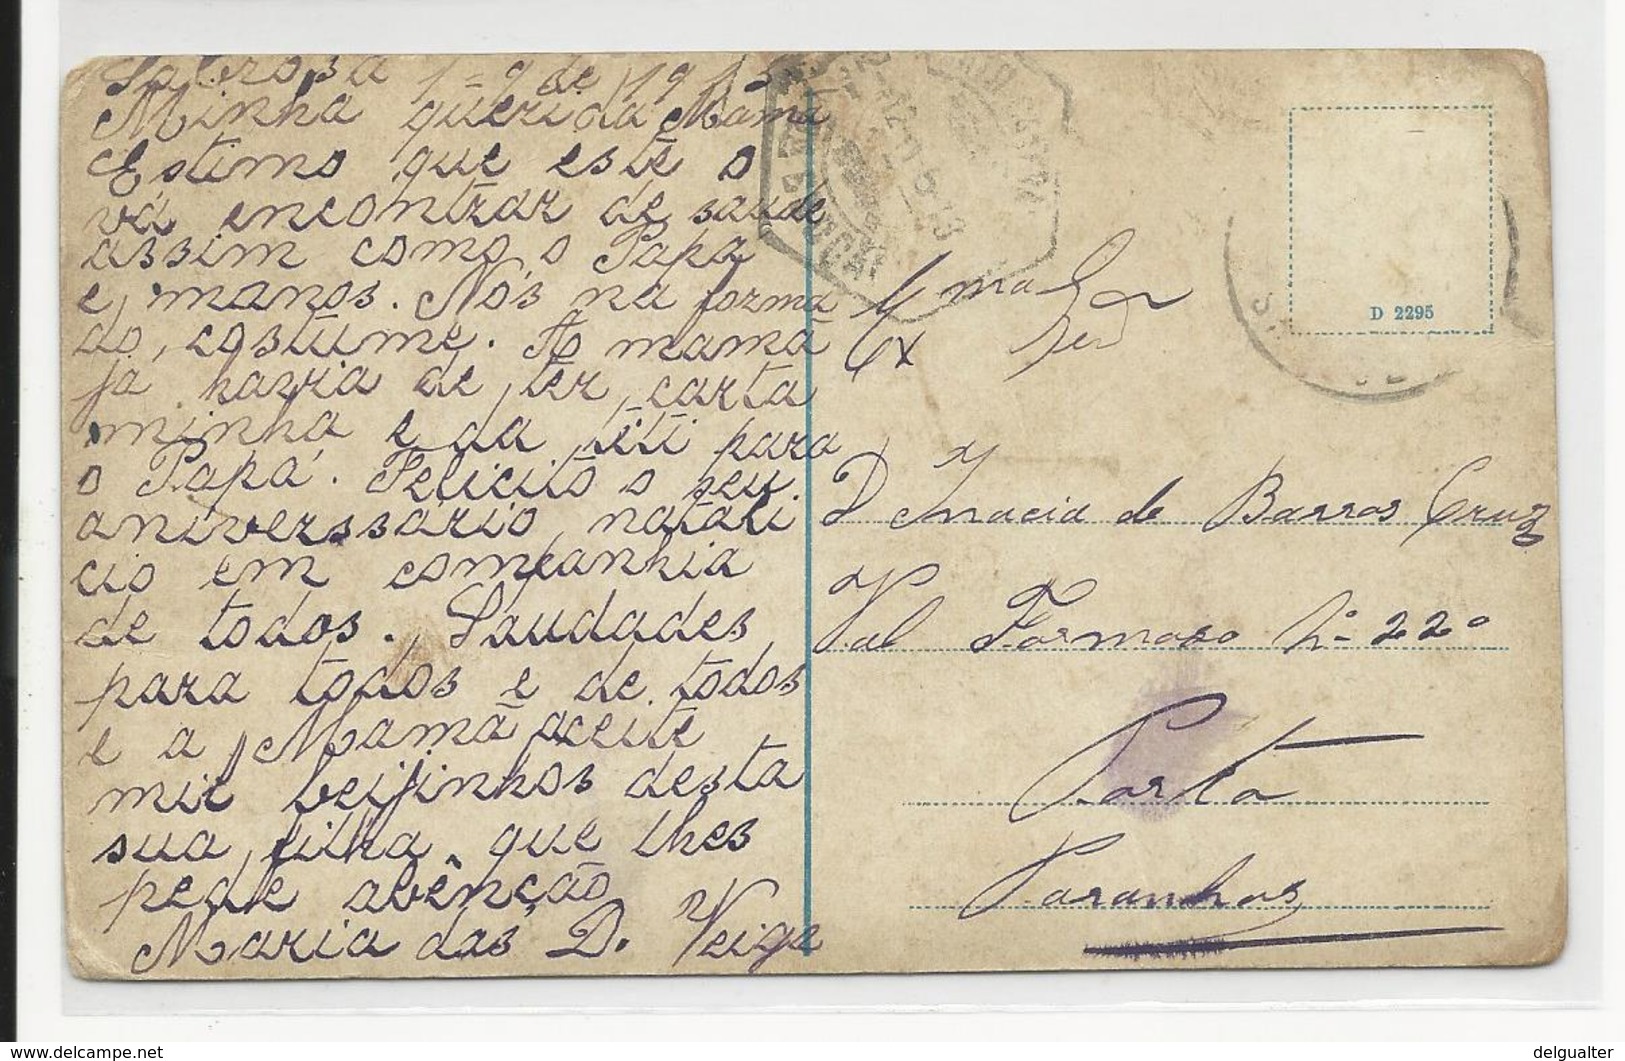 1-9 de 1913
Minha querida Mamã
Estimo que este o
vá encontrar de saude
assim como o Papa
e, manos. Nós na forma
do, costume. Á mamã
ja havia de ter, carta
minha e da titi para
o Papá. Felicito o seu
aniverssário natali
cio em companhia
de todos. Saudades
para todos e de todos
e a Mamã aceite
mil beijinhos desta
sua filha que lhes
pede abênção
Maria das D. Veiga
D 2295
Exma Snra
D Ignacia de Barros Cruz
Val Formoso Nº 220
Porto
Paranhos
delgualter